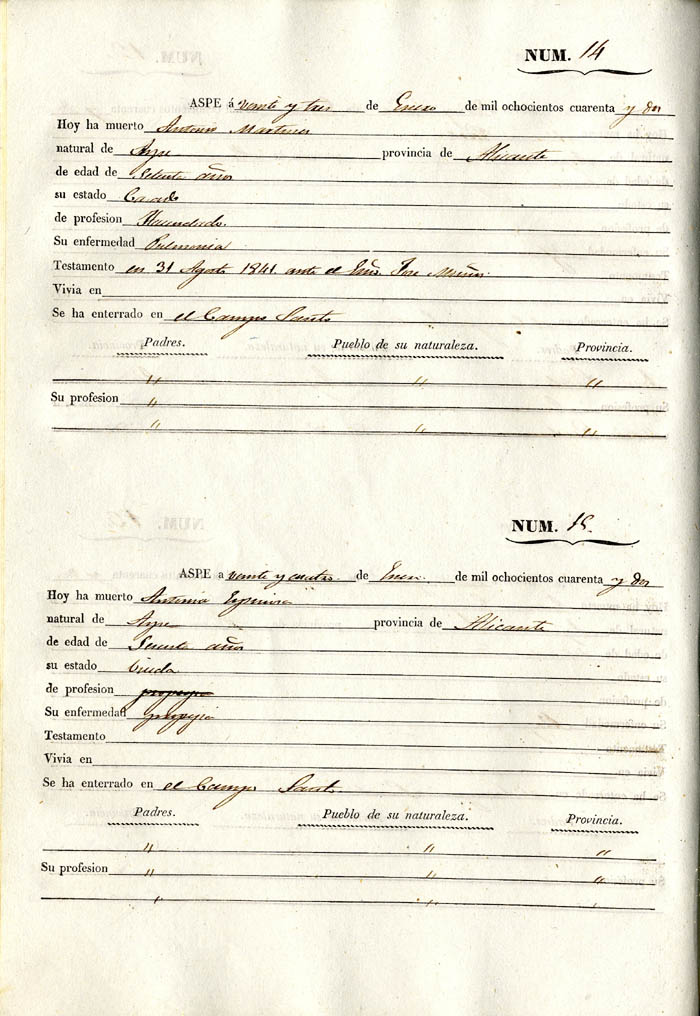 NUM. 14
ASPE á veinte y tres de Enero de mil ochocientos cuarenta y dos
Hoy ha muerto Antonio Martinez
natural de Aspe provincia de Alicante
de edad de Setenta años
su estado Casado
de profesion Hacendado.
Su enfermedad Pulmonia
Testamento en 31 Agosto 1841 ante el Esno. Jose
Vivia en
Se ha enterrado en el Campo Santo
Padres. Pueblo de su naturaleza. Provincia.
" " "
Su profesion "
" " "
NUM. 15.
ASPE a veinte y cuatro de Enero de mil ochocientos cuarenta y dos
Hoy ha muerto Antonia
natural de Aspe provincia de Alicante
de edad de años
su estado Viuda
de profesion
Su enfermedad
Testamento
Vivia en
Se ha enterrado en el Campo Santo
Padres. Pueblo de su naturaleza. Provincia.
" " "
Su profesion " " "
" " "